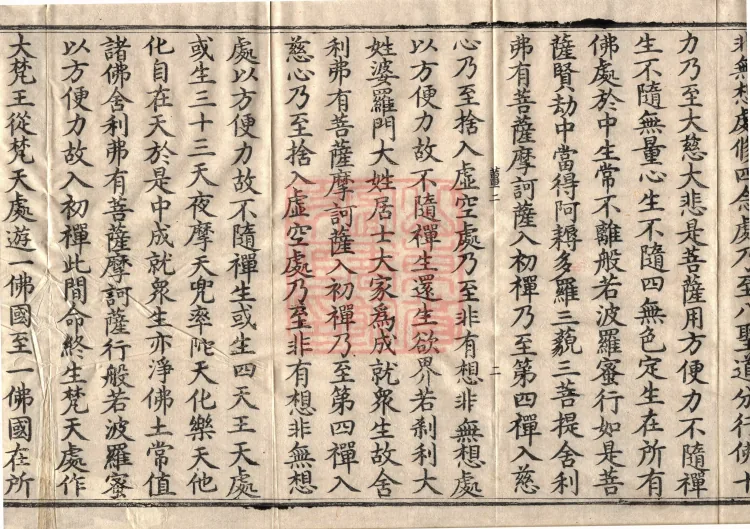 非無想處修四念處乃至八聖道分行佛十
力乃至大慈大悲是菩薩用方便力不隨禪
生不隨無量心生不隨四無色定生在所有
佛處於中生常不離般若波羅蜜行如是菩
薩賢劫中當得阿耨多羅三藐三菩提舍利
弗有菩薩摩訶薩入初禪乃至第四禪入慈
二
心乃至捨入虛空處乃至非有想非無想處
以方便力故不隨禪生還生欲界若剎利大
姓婆羅門大姓居士大家為成就眾生故舍
利弗有菩薩摩訶薩入初禪乃至第四禪入
慈心乃至捨入虛空處乃至非有想非無想
處以方便力故不隨禪生或生四天王天處
或生三十三天夜摩天兜率陀天化樂天他
化自在天於是中成就眾生亦淨佛土常值
諸佛舍利弗有菩薩摩訶薩行般若波羅蜜
以方便力故入初禪此間命終生梵天處作
大梵王從梵天處遊一佛國至一佛國在所